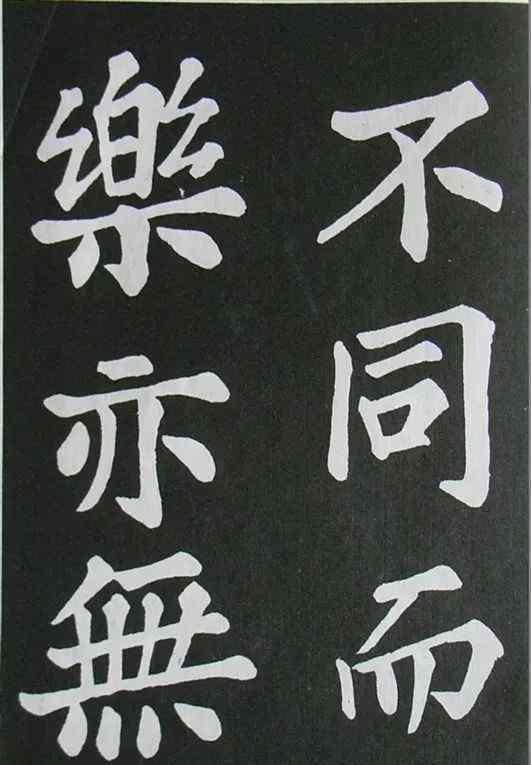 不同而
樂亦無